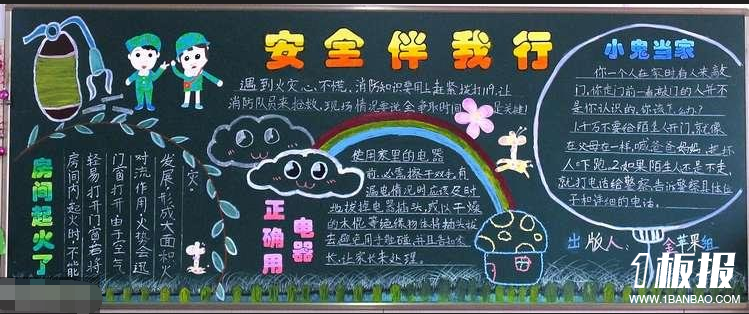 安全伴我行
遇到火灾心不慌,消防知识要用上赶紧拨打119,让
消防队员来抢救,现场情况要说全争取时间是关键!
小鬼当家
你一个人在家时有人来敲
门,你走门前一看敲门的人并不
是你认识的,你该怎么办?
1.千万不要给陌生人开门,就像
在父母在一样,喊爸爸妈妈,把坏
人吓跑。2.如果陌生人还是不走,
就打电话给警察,告诉警察具体位
子和详细的电话。
出版人: 金苹果组
使用家里的电器
前,必需擦干双手,有
漏电情况时应该及时
地拔掉电器插头,或以干燥
的木棍等绝缘物体将插头拔
去,避免用手触碰,并且告知家
长,让家长来处理。
正确用
电器
房间起火了
房间内起火时,不能
轻易打开门窗,若将
门窗打开由于空气
对流作用,火势会迅
发展,形成大面积火
灾。
1板报
WWW.1BANBAO.COM